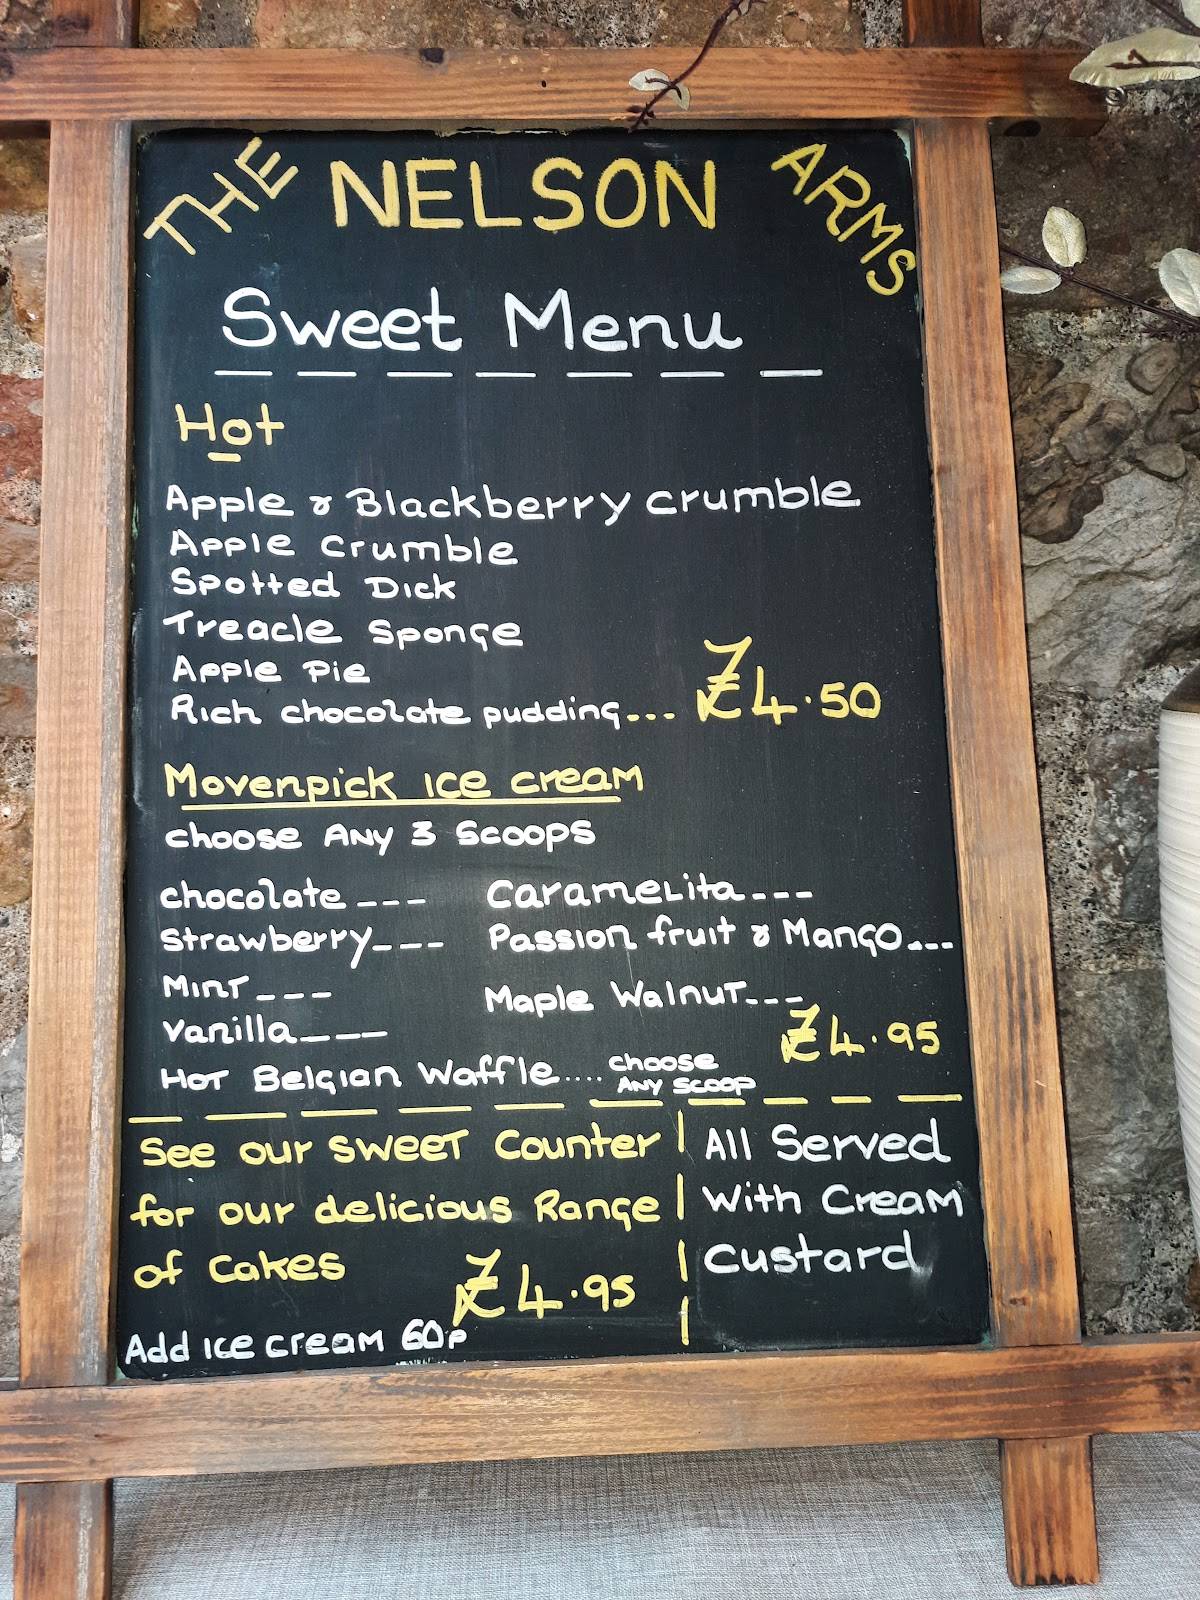 THE NELSON ARMS
Sweet Menu
Hot
Apple & Blackberry crumble
Apple crumble
Spotted Dick
Treacle Sponge
Apple Pie
Rich chocolate pudding... £4.50
Movenpick ice cream
choose Any 3 Scoops
chocolate --- Caramelita ---
Strawberry --- Passion fruit & Mango ---
Mint --- Maple Walnut ---
vanilla --- £4.95
Hot Belgian Waffle .... choose Any scoop
See our sweet Counter
for our delicious Range
of Cakes
£4.95
Add ice cream 60p
All Served
With Cream
Custard